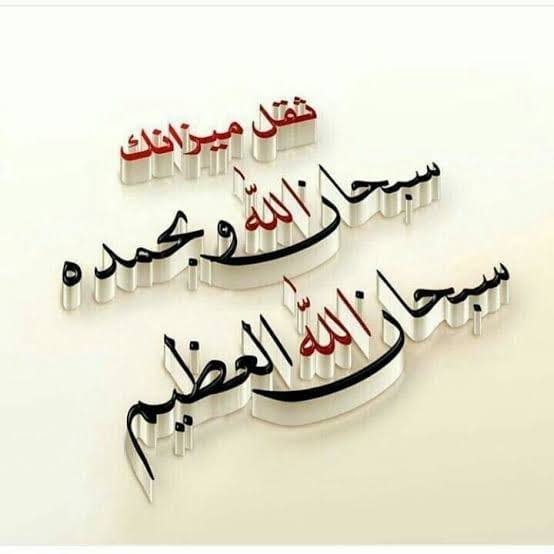 ثقل ميزانك
سبحان الله وبحمده
سبحان الله العظيم